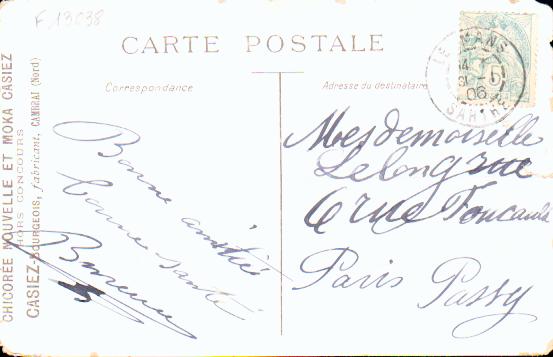 F 13038
CARTE POSTALE
Correspondance
Adresse du destinataire
CHICORÉE NOUVELLE ET MOKA CASIEZ
HORS CONCOURS
CASIEZ-BOURGEOIS, fabricant, CAMBRAI (Nord)
LE MANS
06
SARTHE
Bonne amitié
bonne santé
Mesdemoiselle
Lelong rue
6 rue Foucault
Paris Passy